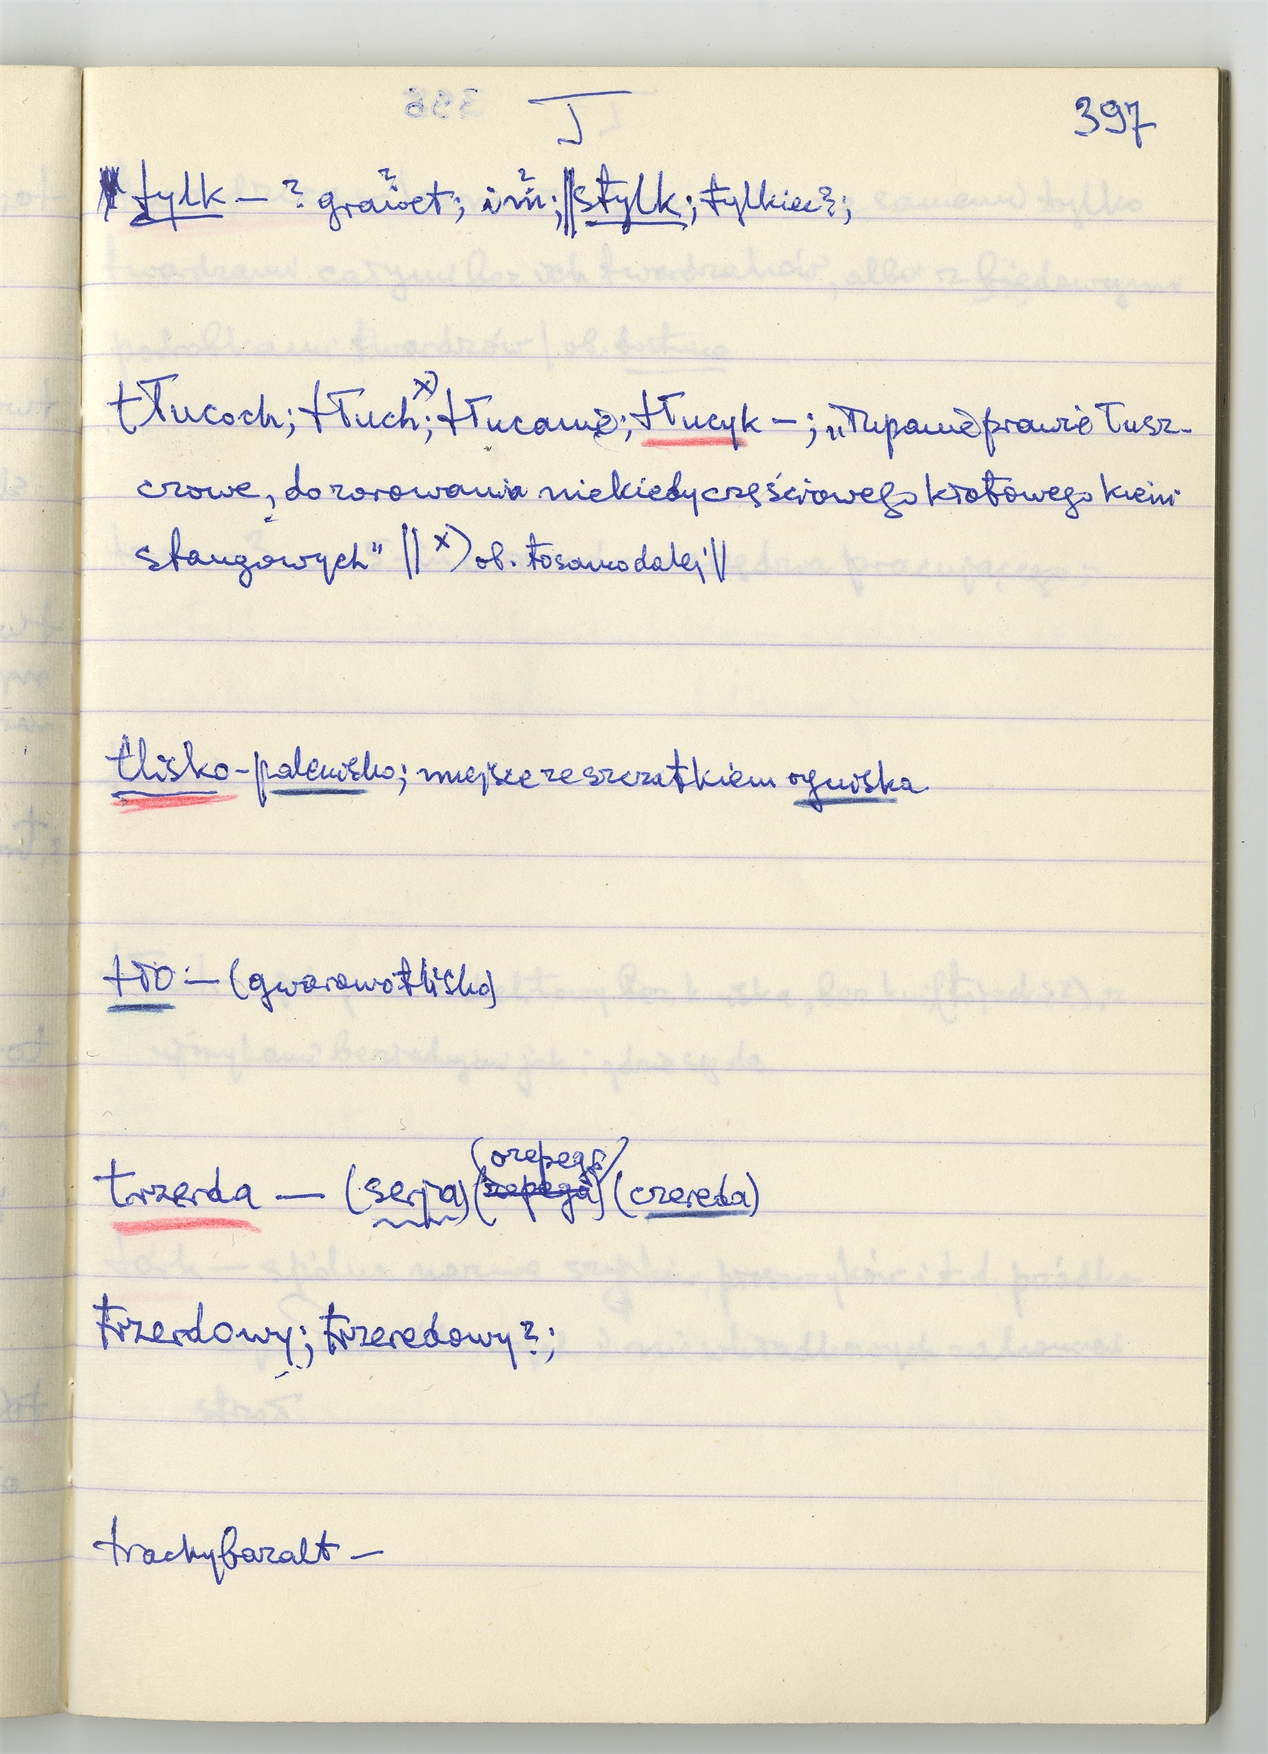 T 397
tylk – ? graiĉet; i in; || stylk; tylkiec?;
tłucoch; tłuch; x) tłucanie; tłucyk –; „łupanie prawie łusz-
czowe, do rozowania niekiedy częściowego kratowego
stangowych" || x) ob. to samo dalej ||
tlisko – palenisko; miejsce ze szczątkiem ogniska
tło – (gwarowo tlisko)
(ozepega)
trzerda – (serja) (czereda)
trzerdowy; trzeredowy?;
trachybazalt –